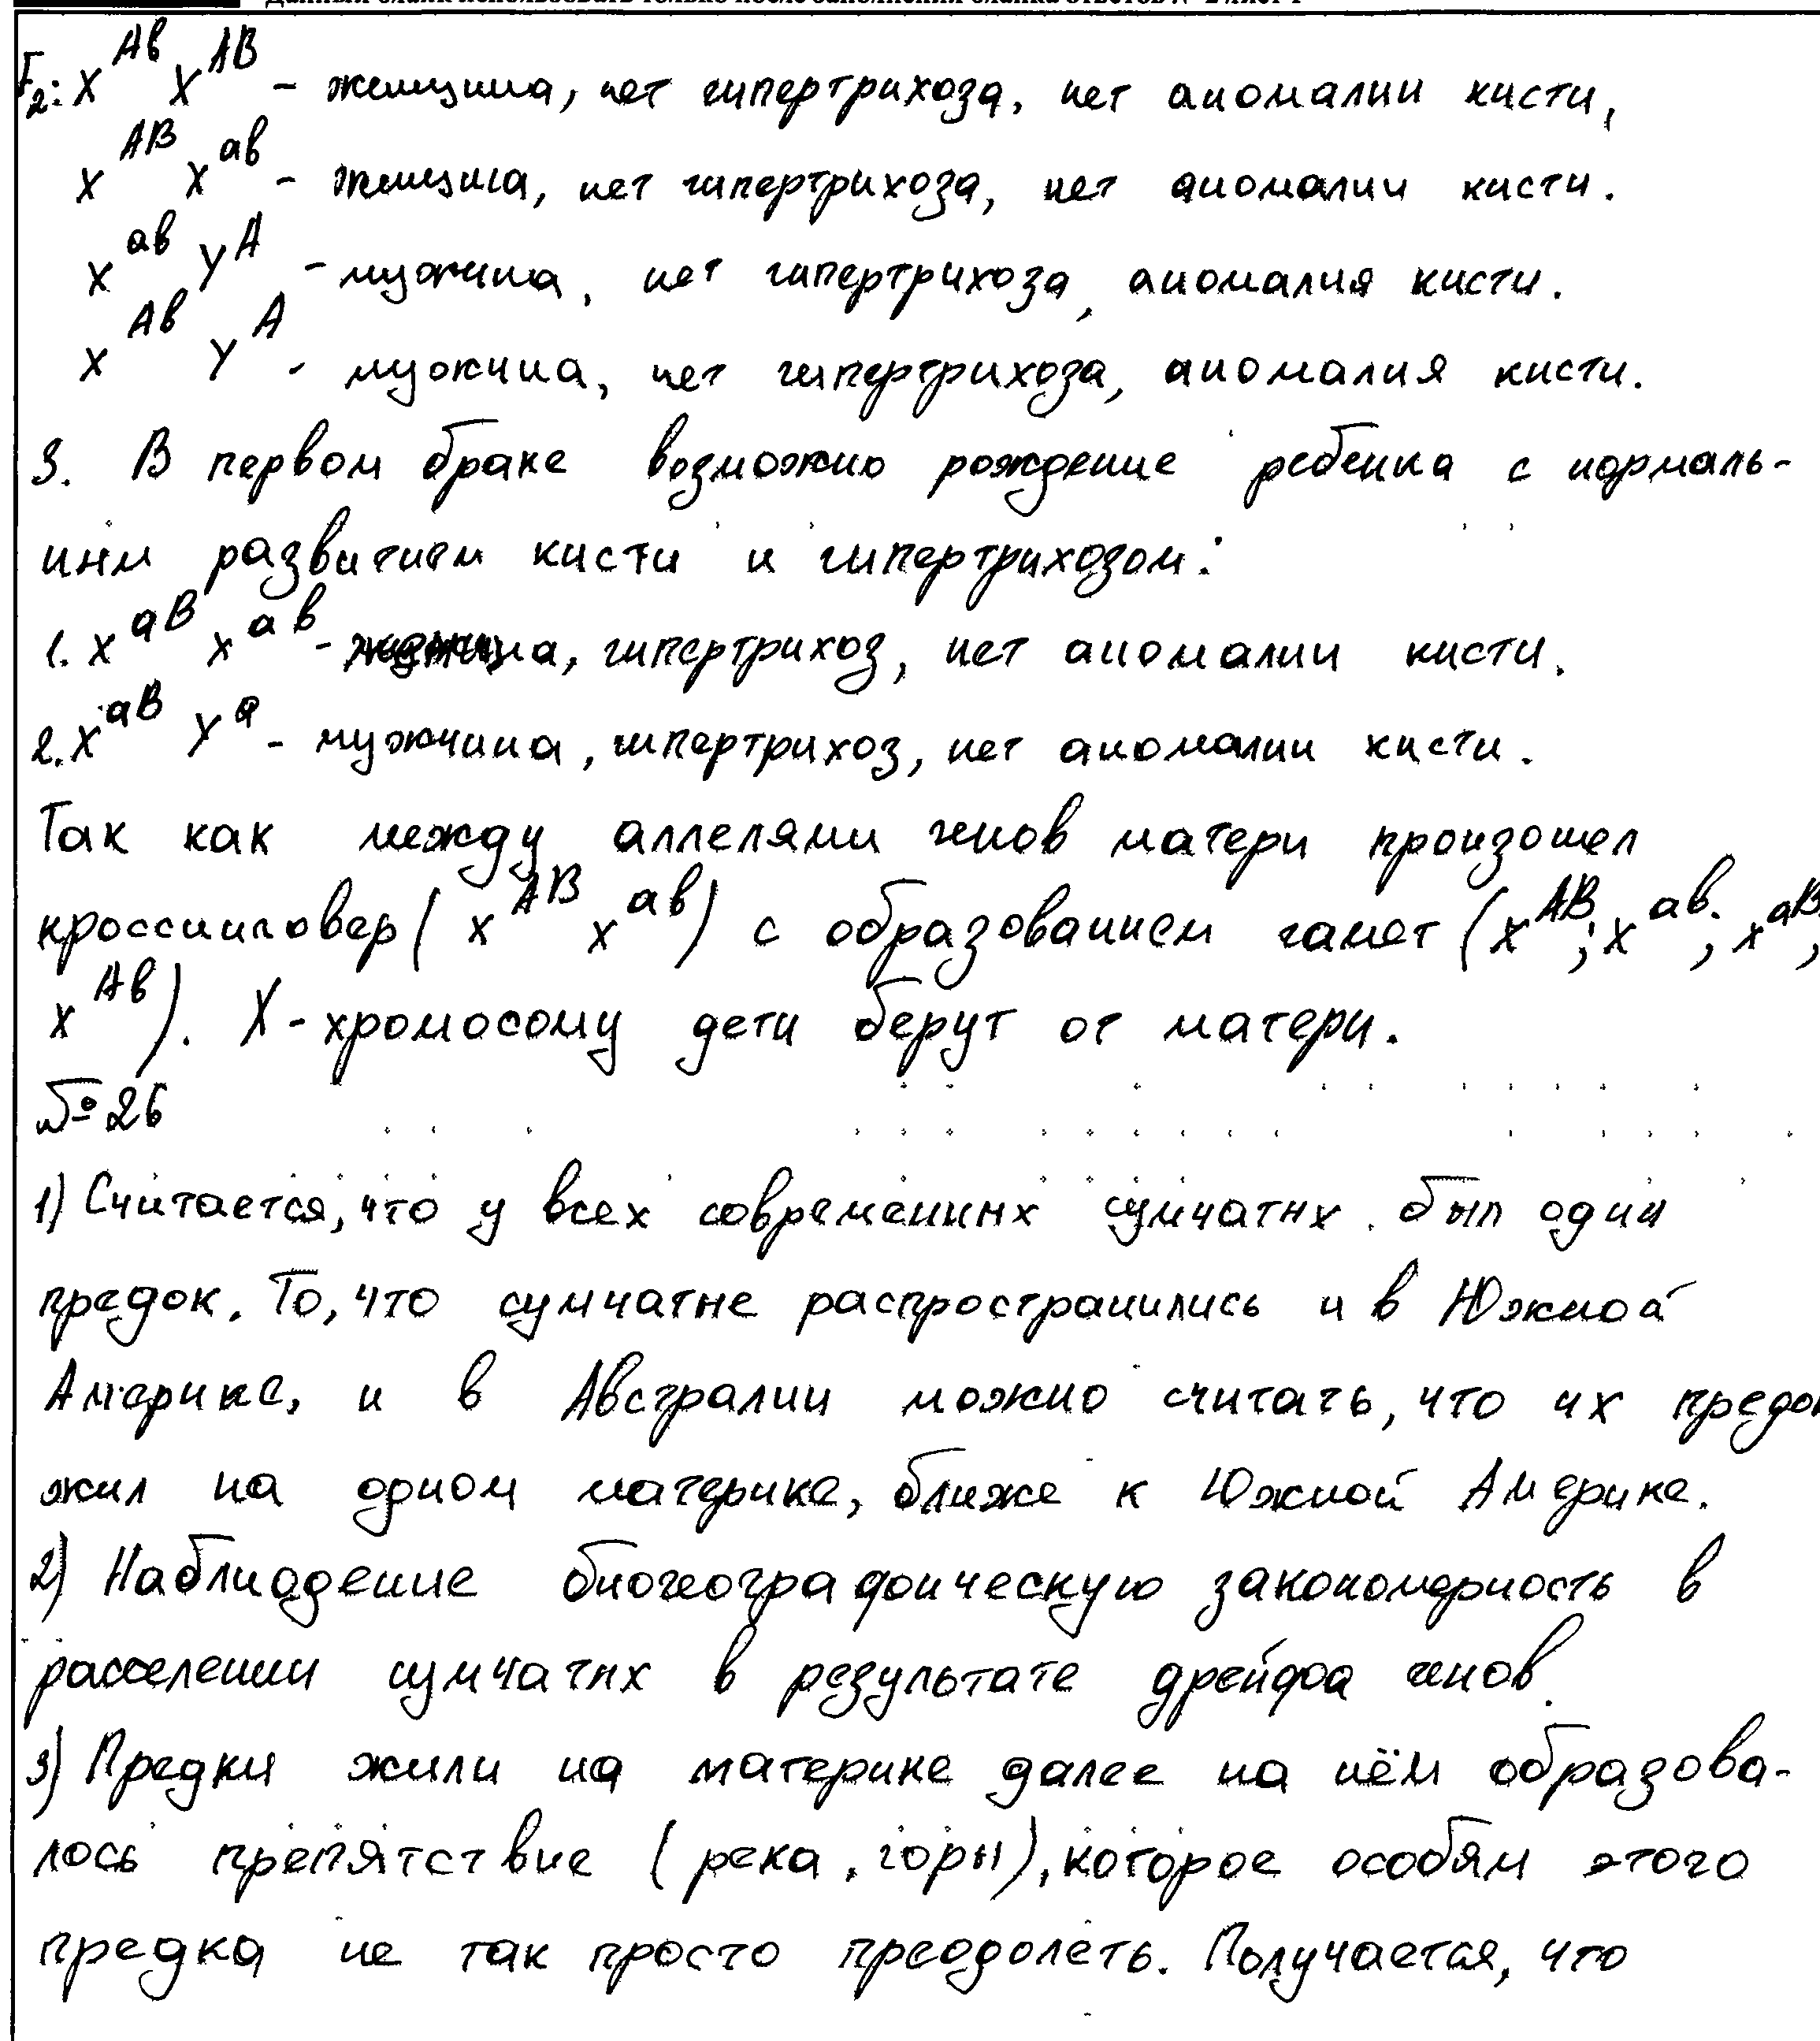 F₂: X^Ав X^АВ - женщина, нет гипертрихоза, нет аномалии кисти,
X^АВ X^ав - женщина, нет гипертрихоза, нет аномалии кисти.
X^ав Y^А - мужчина, нет гипертрихоза, аномалия кисти.
X^Ав Y^А - мужчина, нет гипертрихоза, аномалия кисти.
3. В первом браке возможно рождение ребенка с нормаль-
ным развитием кисти и гипертрихозом:
1. X^аВ X^ав - женщина, гипертрихоз, нет аномалии кисти.
2. X^аВ Y^а - мужчина, гипертрихоз, нет аномалии кисти.
Так как между аллелями генов матери произошел
кроссинговер (X^АВ X^ав) с образованием гамет (X^АВ; X^ав; X^аВ,
X^Ав). X-хромосому дети берут от матери.
№ 26
1) Считается, что у всех современных сумчатых был один
предок. То, что сумчатые распространились и в Южной
Америке, и в Австралии можно считать, что их предок
жил на одном материке, ближе к Южной Америке.
2) Наблюдение биогеографическую закономерность в
расселении сумчатых в результате дрейфа генов.
3) Предки жили на материке далее на нём образова-
лось препятствие (река, горы), которое особям этого
предка не так просто преодолеть. Получается, что